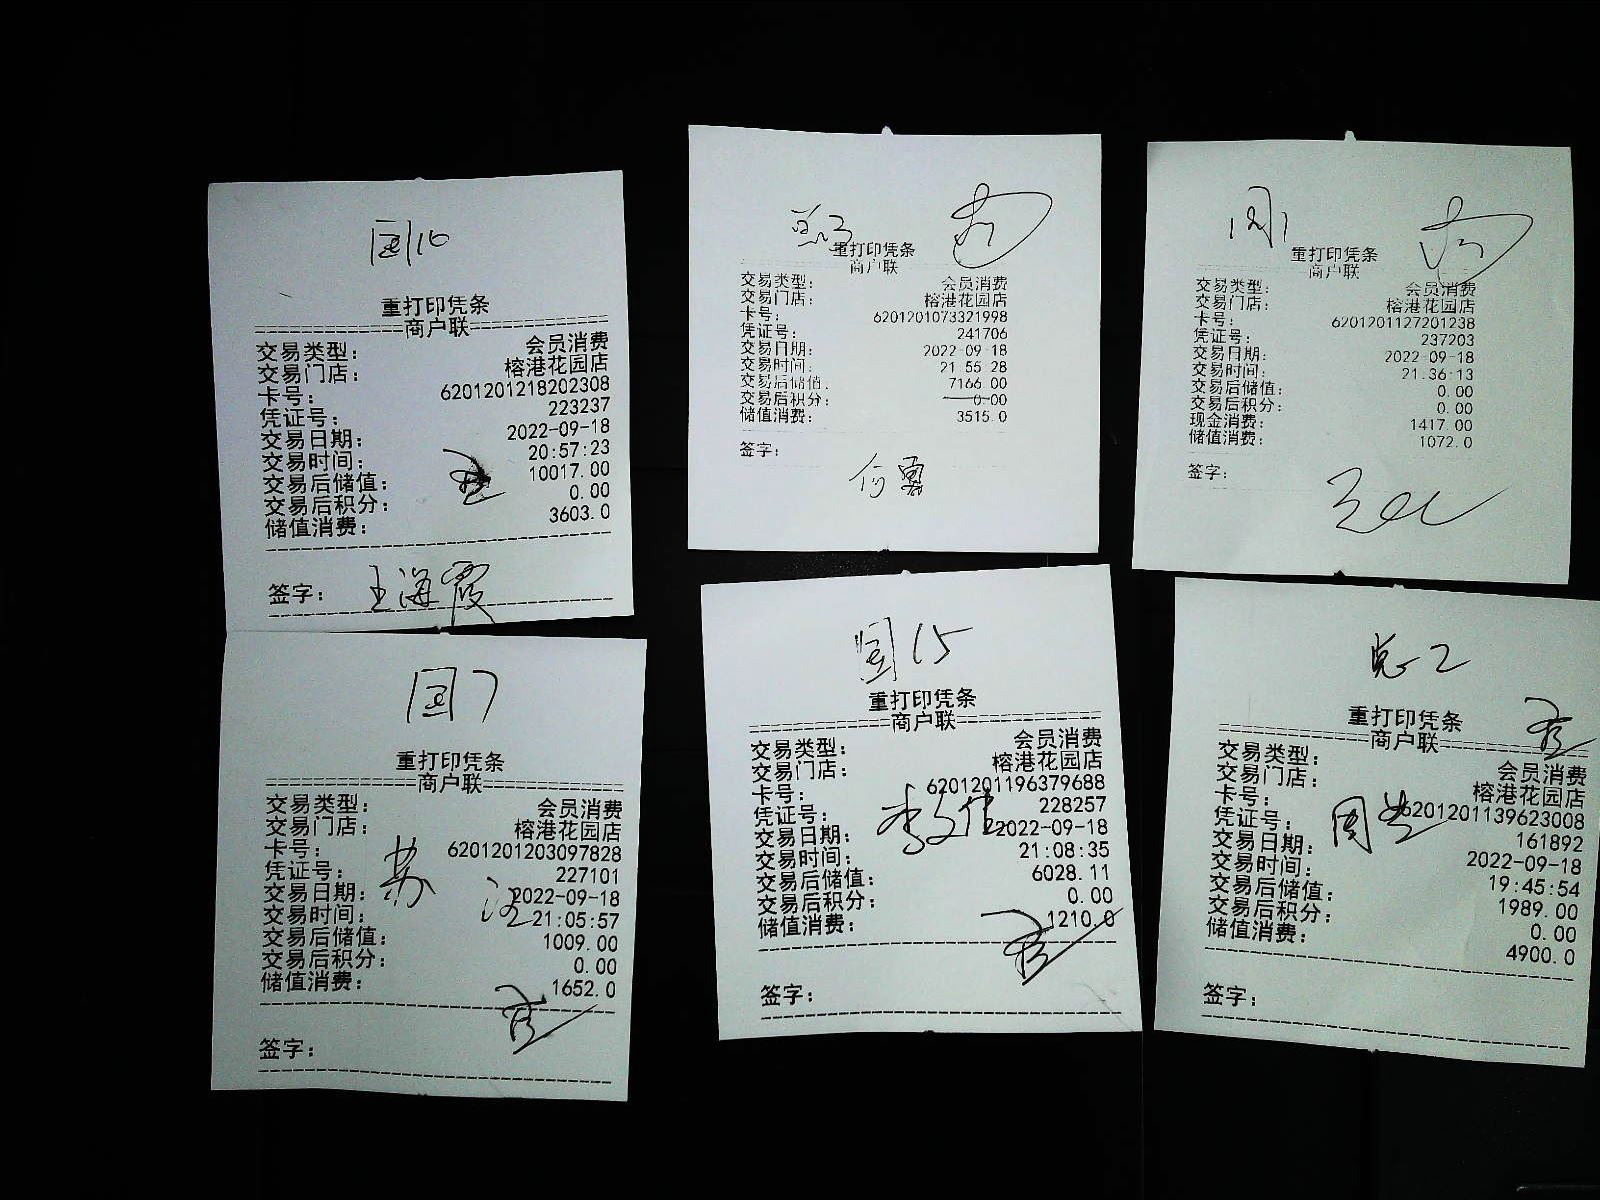 国16
重打印凭条
商户联
交易类型： 会员消费
交易门店： 榕港花园店
卡号： 6201201218202308
凭证号： 223237
交易日期： 2022-09-18
交易时间： 20:57:23
交易后储值： 10017.00
交易后积分： 0.00
储值消费： 3603.0
签字： 王海霞
重打印凭条
商户联
交易类型： 会员消费
交易门店： 榕港花园店
卡号： 6201201073321998
凭证号： 241706
交易日期： 2022-09-18
交易时间： 21 55 28
交易后储值. 7166 00
交易后积分： 0.00
储值消费： 3515.0
签字：
重打印凭条
商户联
交易类型： 会员消费
交易门店： 榕港花园店
卡号： 6201201127201238
凭证号： 237203
交易日期： 2022-09-18
交易时间： 21.36:13
交易后储值： 0.00
交易后积分： 0.00
现金消费： 1417.00
储值消费： 1072.0
签字：
国7
重打印凭条
商户联
交易类型： 会员消费
交易门店： 榕港花园店
卡号： 6201201203097828
凭证号： 227101
交易日期： 2022-09-18
交易时间： 21:05:57
交易后储值： 1009.00
交易后积分： 0.00
储值消费： 1652.0
签字：
国15
重打印凭条
商户联
交易类型： 会员消费
交易门店： 榕港花园店
卡号： 6201201196379688
凭证号： 228257
李文佳
交易日期： 2022-09-18
交易时间： 21:08:35
交易后储值： 6028.11
交易后积分： 0.00
储值消费： 1210.0
签字：
重打印凭条
商户联
交易类型： 会员消费
交易门店： 榕港花园店
卡号： 6201201139623008
凭证号： 161892
交易日期： 2022-09-18
交易时间： 19:45:54
交易后储值： 1989.00
交易后积分： 0.00
储值消费： 4900.0
签字：